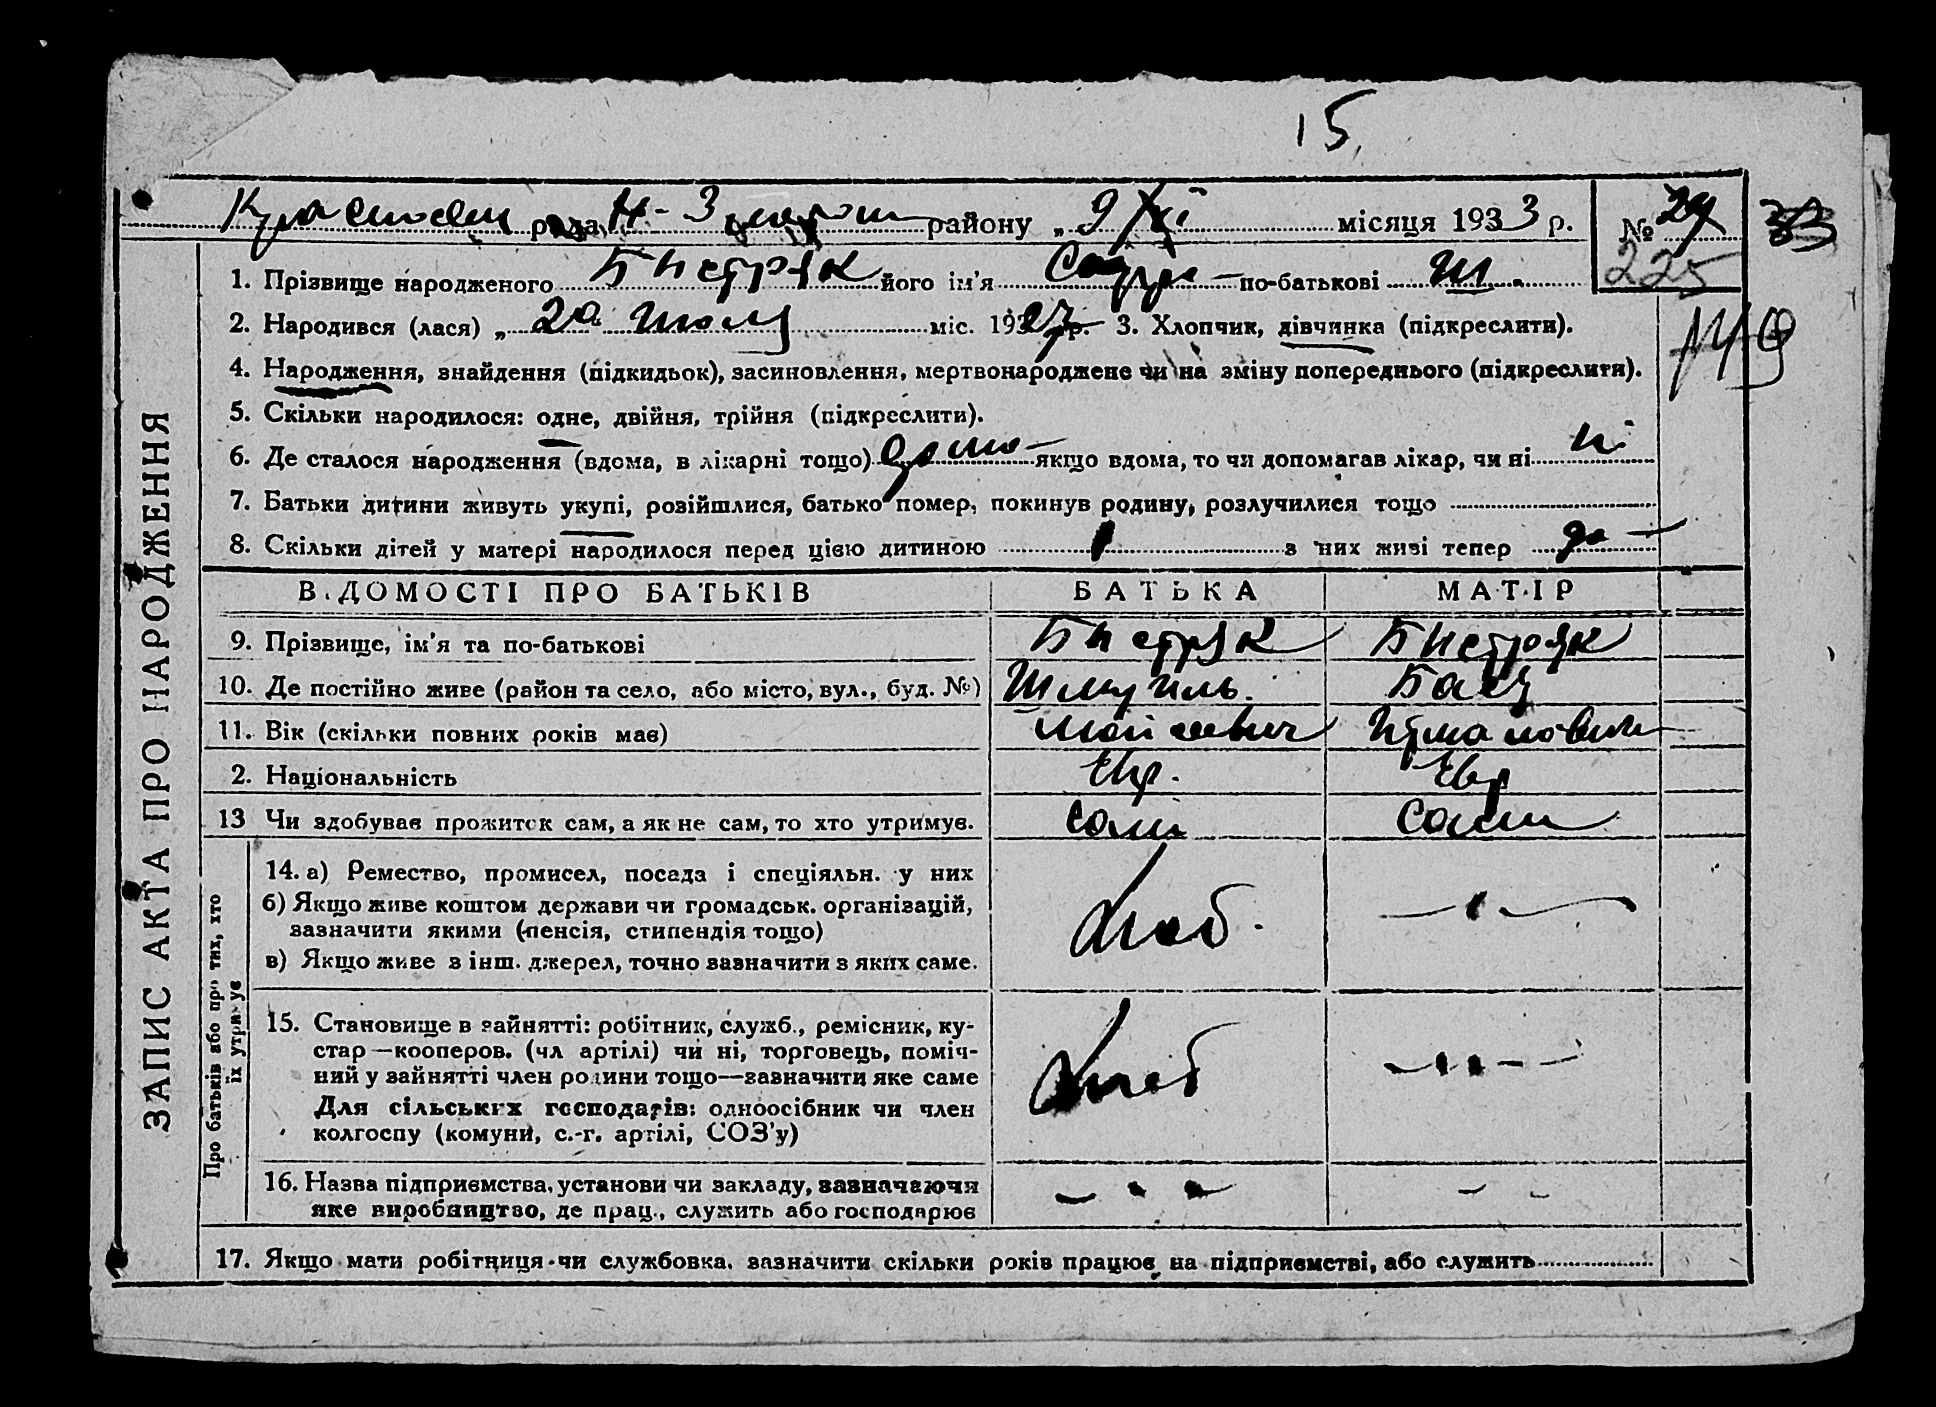 15.
рада Н-З району „ 9/XI місяця 1933 р. №
225
1. Прізвище народженого Бистряк його ім'я по-батькові Ш.
2. Народився (лася) „ 20 міс. 1927 р. 3. Хлопчик, дівчинка (підкреслити).
4. Народження, знайдення (підкидьок), засиновлення, мертвонароджене чи на зміну попереднього (підкреслити).
5. Скільки народилося: одне, двійня, трійня (підкреслити).
6. Де сталося народження (вдома, в лікарні тощо) дома якщо вдома, то чи допомагав лікар, чи ні ні
7. Батьки дитини живуть укупі, розійшлися, батько помер, покинув родину, розлучилися тощо
8. Скільки дітей у матері народилося перед цією дитиною 1 з них живі тепер да
ЗАПИС АКТА ПРО НАРОДЖЕННЯ
В.ДОМОСТІ ПРО БАТЬКІВ БАТЬКА МАТІР
9. Прізвище, ім'я та по-батькові Бистряк Бистряк
10. Де постійно живе (район та село, або місто, вул., буд. №) Шмуиль. Бася
11. Вік (скільки повних років має) Мойсевич
2. Національність Евр. Евр
13 Чи здобуває прожиток сам, а як не сам, то хто утримує. сами сами
Про батьків або про тих, хто їх утримує
14. а) Ремество, промисел, посада і спеціяльн. у них
б) Якщо живе коштом держави чи громадськ. організацій,
зазначити якими (пенсія, стипендія тощо)
в) Якщо живе з інш. джерел, точно зазначити з яких саме.
15. Становище в зайнятті: робітник, служб., ремісник, ку-
стар—кооперов. (чл артілі) чи ні, торговець, поміч-
ний у зайнятті член родини тощо—зазначити яке саме
Для сільських господарів: одноосібник чи член
колгоспу (комуни, с.-г. артілі, СОЗ'у)
16. Назва підприємства, установи чи закладу, зазначаючи
яке виробництво, де прац., служить або господарює
17. Якщо мати робітниця чи службовка, зазначити скільки років працює на підприємстві, або служить